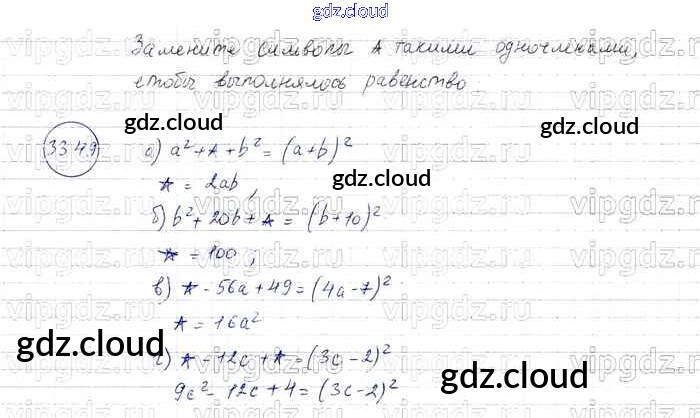 gdz.cloud
Замените символы * такими одночленами,
чтобы выполнялось равенство.
33.49
а) a² + * + b² = (a+b)²
* = 2ab,
б) b² + 20b + * = (b+10)²
* = 100;
в) * - 56a + 49 = (4a-7)²
* = 16a²
г) * - 12c + * = (3c-2)²
9c² - 12c + 4 = (3c-2)²
gdz.cloud
gdz.cloud
gdz.cloud
gdz.cloud
gdz.cloud
vipgdz.ru